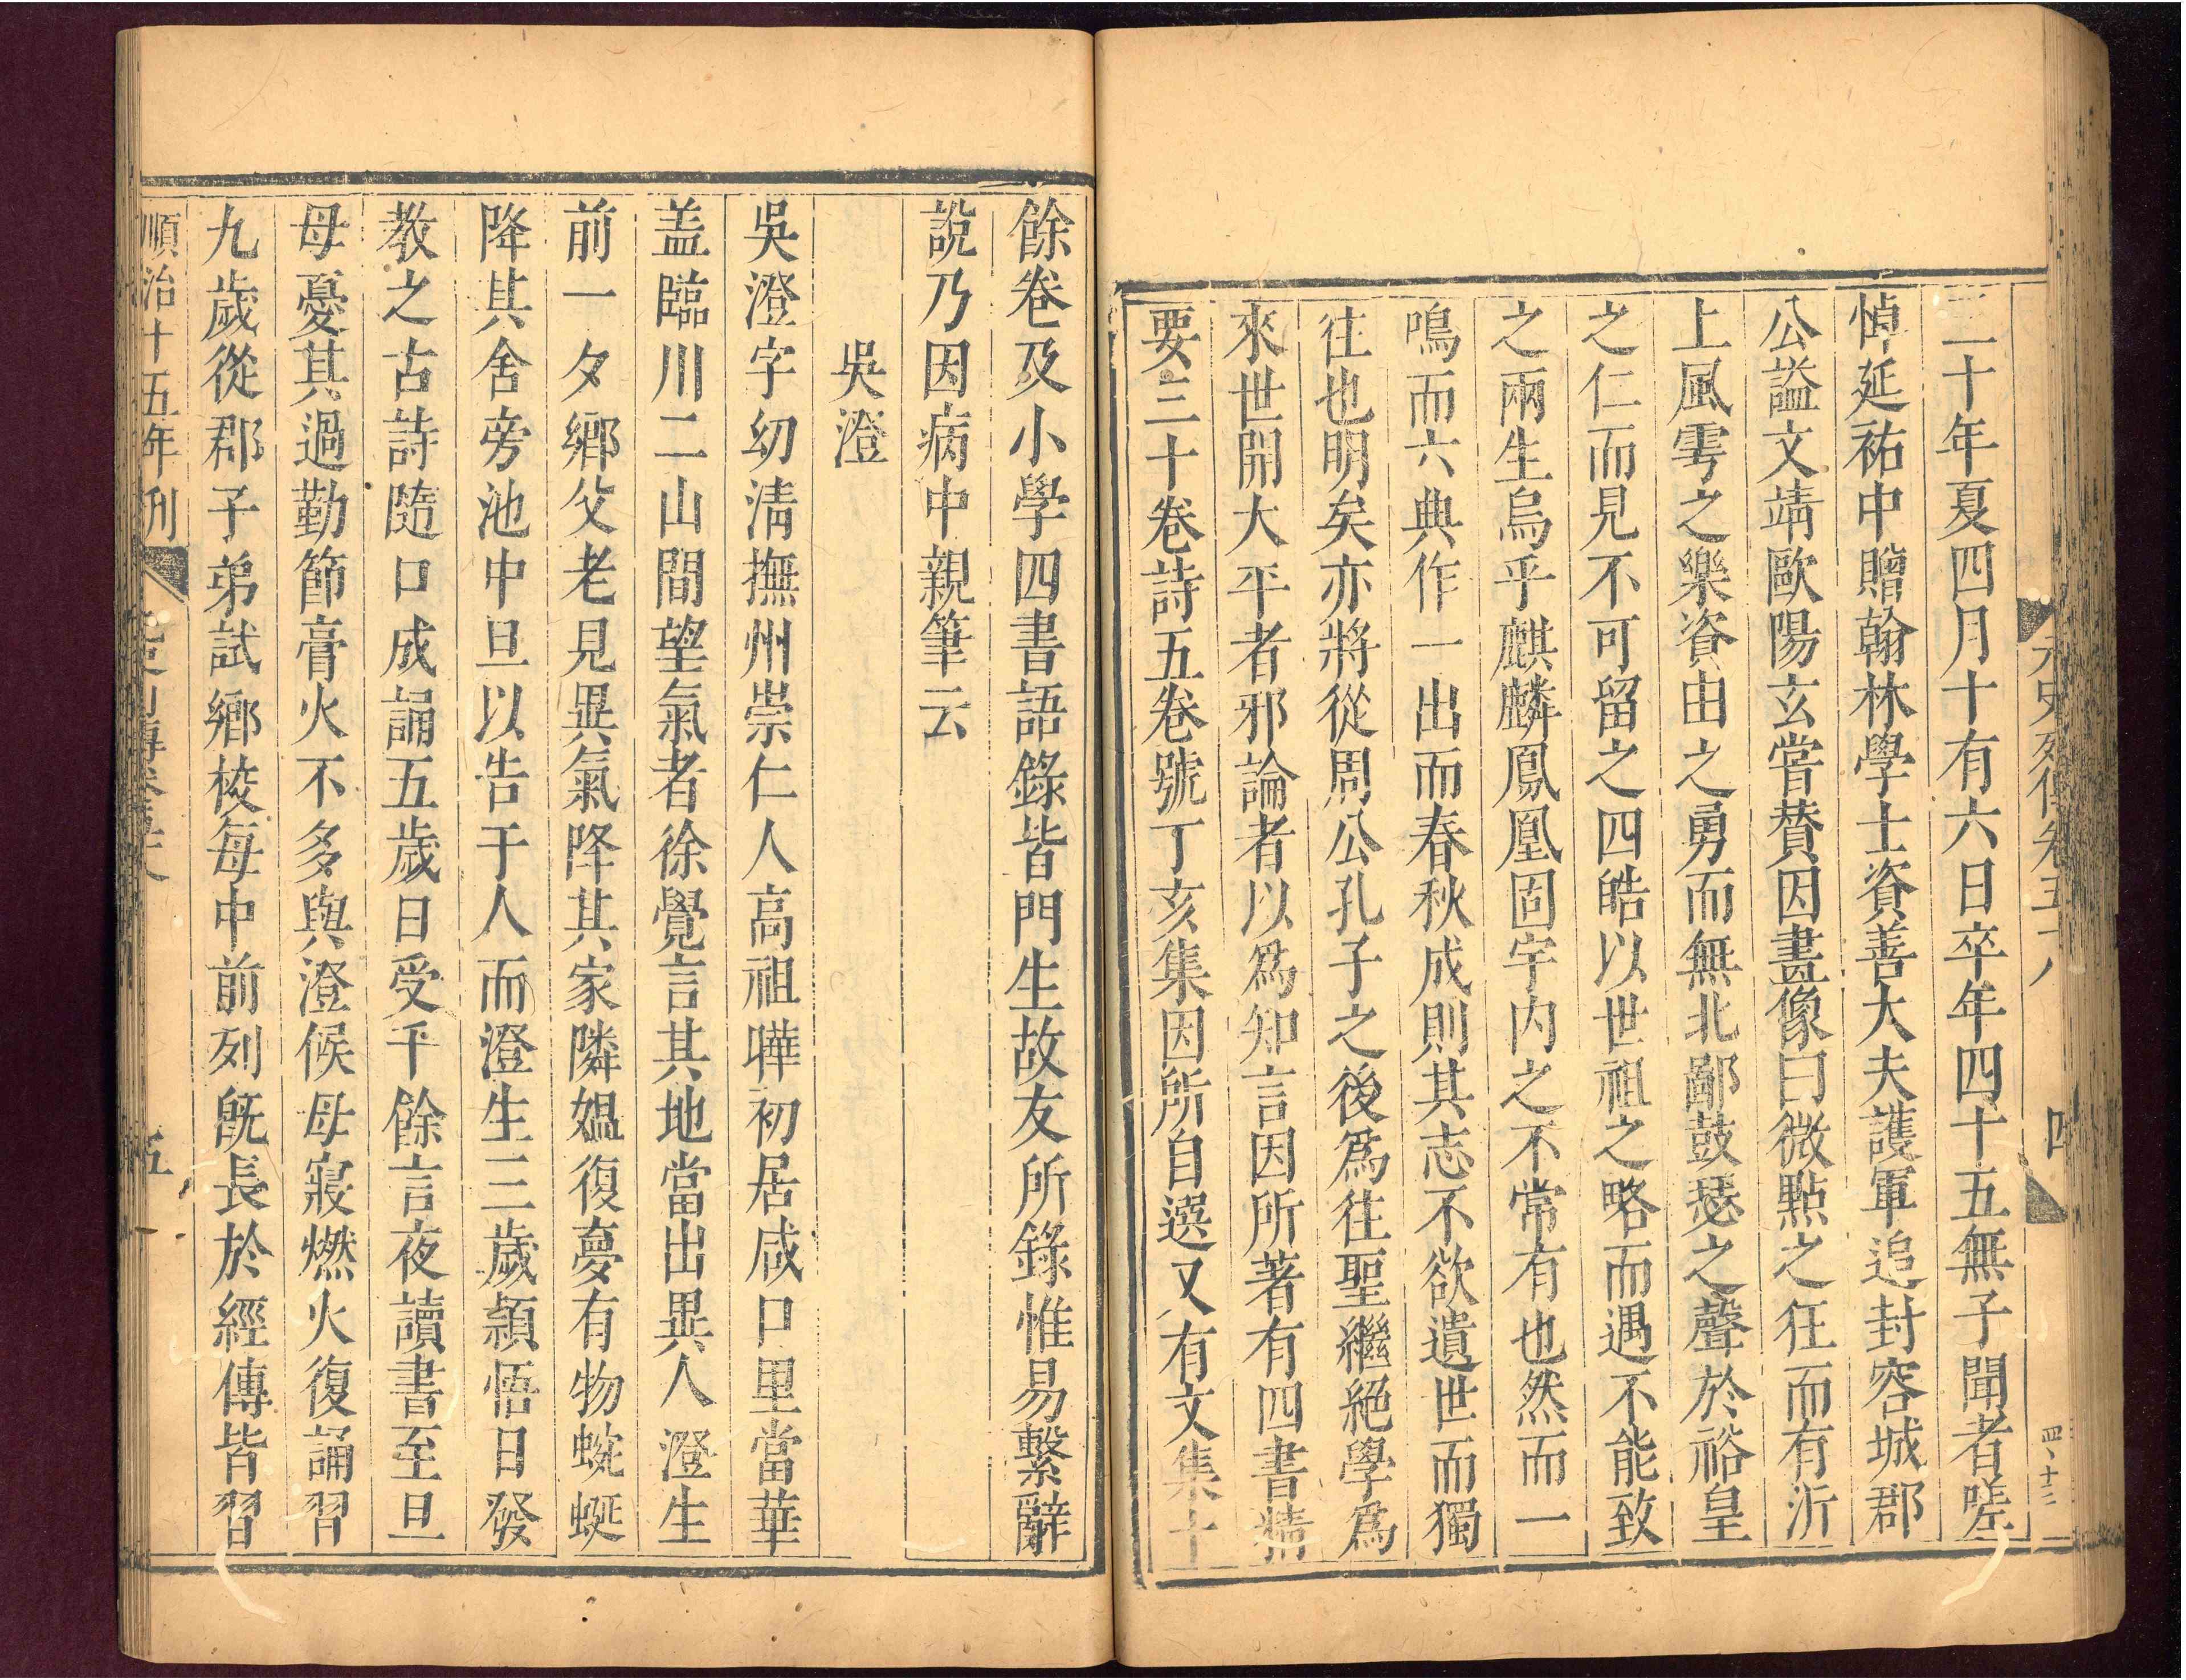 元史列傳卷五十八 四
三十年夏四月十有六日卒年四十五無子聞者嗟
悼延祐中贈翰林學士資善大夫護軍追封容城郡
公謚文靖歐陽玄嘗賛因畫像曰微點之狂而有沂
上風雩之樂資由之勇而無北鄙鼓瑟之聲於裕皇
之仁而見不可留之四皓以世祖之略而遇不能致
之兩生烏乎麒麟鳳凰固宇内之不常有也然而一
鳴而六典作一出而春秋成則其志不欲遺世而獨
往也明矣亦將從周公孔子之後爲往聖繼絕學爲
來世開大平者邪論者以爲知言因所著有四書精
要三十卷詩五卷號丁亥集因所自選又有文集十
餘卷及小學四書語錄皆門生故友所錄惟易繫辭
說乃因病中親筆云
吳澄
吳澄字幼清撫州崇仁人高祖曄初居咸口里當華
盖臨川二山間望氣者徐覺言其地當出異人澄生
前一夕鄉父老見異氣降其家隣媼復夢有物蜿蜒
降其舍旁池中旦以告于人而澄生三歲穎悟日發
教之古詩隨口成誦五歲日受千餘言夜讀書至旦
母憂其過勤節膏火不多與澄候母寢燃火復誦習
九歲從郡子弟試鄉校每中前列旣長於經傳皆習
順治十五年刊 五